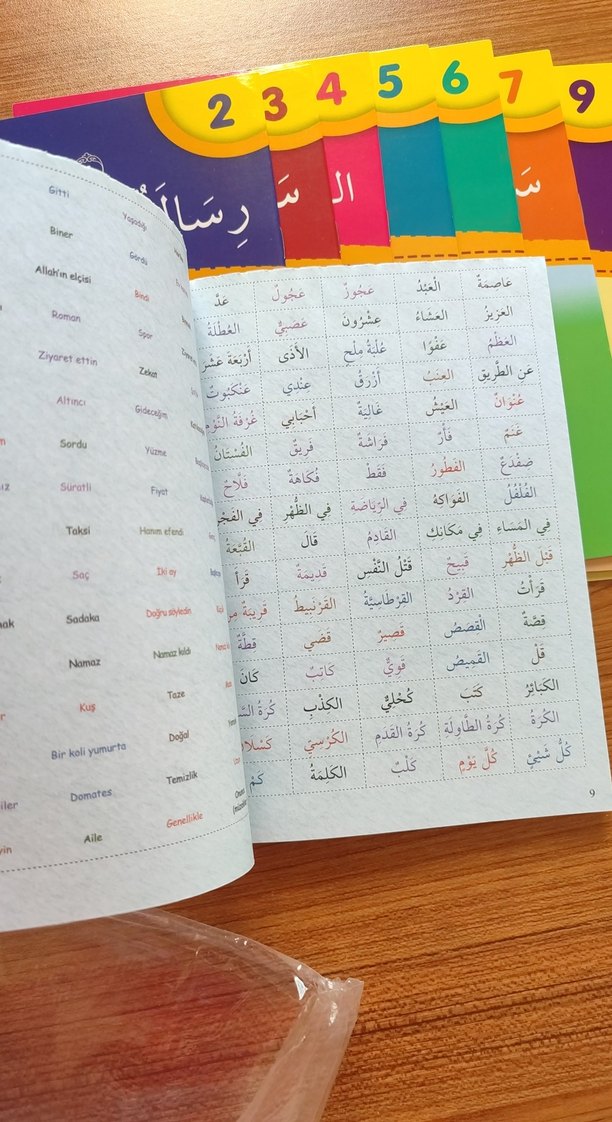 2 3 4 5 6 7 9
Gitti Yaşadığı
Biner Gördü
Allah'ın elçisi Bindi
Roman Spor
Ziyaret ettin Zekat
Altıncı Gideceğim
Sordu Yüzme
Süratli Fiyat
Taksi Hanım efendi
Saç İki ay
Sadaka Doğru söyledin
Namaz Namaz kıldı
Kuş Taze
Bir koli yumurta Doğal
Domates Temizlik
Aile Genellikle
عَاصِمَةٌ الْعَبْدُ عَجُوزٌ عَجُولٌ عَدَّ
العَزِيزُ العَشَاءُ عِشْرُونَ عَصَبِيٌّ العُطْلَةُ
العَظْمُ عَفْوًا عُلْبَةُ مِلْحٍ الأَذَى أَرْبَعَةَ
عَنِ الطَّرِيقِ العِنَبُ أَزْرَقُ عِنْدِي عَنْكَبُوتٌ
عُنْوَانٌ العَيْشُ غَالِيَةٌ أَحْبَابِي غُرْفَةُ
غَنَمٌ فَأْرٌ فَرَاشَةٌ فَرِيقٌ الفُسْتَانُ
ضِفْدَعٌ الفَطُورُ فَقَطْ فُكَاهَةٌ فَلَّاحٌ
الفُلْفُلُ الفَوَاكِهُ فِي الرِّيَاضَةِ فِي الظُّهْرِ فِي
فِي المَسَاءِ فِي مَكَانِكَ القَادِمُ قَالَ القُبَّعَةُ
قَبْلَ الظُّهْرِ قَبِيحٌ قَتْلُ النَّفْسِ قَدِيمَةٌ قَرَأَ
قَرَأْتُ القِرْدُ القِرْطَاسِيَّةُ القَرْنَبِيطُ قَرِيبَةٌ
قِصَّةٌ الْقِصَصُ قَصِيرٌ قَضَى قِطَّةٌ
قُلْ القَمِيصُ قَوِيٌّ كَاتِبٌ كَانَ
الكَبَائِرُ كَتَبَ كُحْلِيٌّ الكَذِبِ كُرَةُ
الكُرَةُ كُرَةُ الطَّاوِلَةِ كُرَةُ القَدَمِ الكُرْسِيِّ
كُلُّ شَيْئٍ كُلَّ يَوْمٍ كَلْبٌ الكَلِمَةُ كَمْ
9